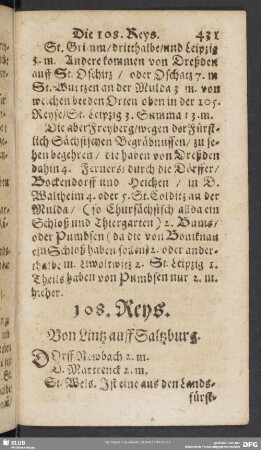 Die 108. Reys. 431
St. Grimm/dritthalbe/und Leipzig
3. m. Andere kommen von Dreßden
auff St. Oschitz / oder Oschatz 7. m
St. Wurtzen an der Mulda 3 m. von
welchen beeden Orten oben in der 105.
Reyse/St. Leipzig 3. Summa 13. m.
Die aber Freyberg/wegen der Fürst-
lich Sächsischen Begräbnussen/ zu se-
hen begehren / die haben von Dreßden
dahin 4. Ferners/ durch die Dörffer/
Bockendorff und Heichen / in D.
Waltheim 4. oder 5. St. Colditz an der
Mulda/ (so Chursächsisch allda ein
Schloß und Thiergarten) 2. Baus/
oder Pumbsen (da die von Bonitkau
ein Schloß haben sollen) 2. oder ander-
thalbe m. Liwolkwitz 2. St. Leipzig 1.
Theils haben von Pumbsen nur 2. m.
hieher.
108. Reys.
Von Lintz auff Saltzburg.
DOrff Newbach 2. m.
D. Martrenck 2. m.
St. Wels. Ist eine aus den Lands-
fürst-
SLUB
DFG